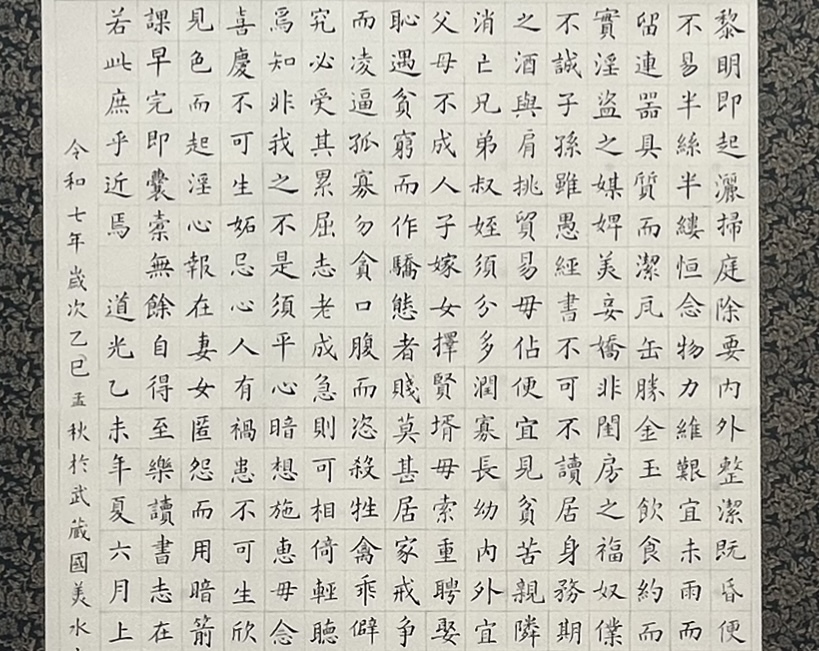 黎明即起灑掃庭除要内外整潔既昏便
不易半絲半縷恒念物力維艱宜未雨而
留連噐具質而潔瓦缶勝金玉飲食約而
實淫盜之媒婢美妾嬌非閨房之福奴僕
不誠子孫雖愚經書不可不讀居身務期
之酒與肩挑貿易毋佔便宜見貧苦親隣
消亡兄弟叔姪須分多潤寡長幼内外宜
父母不成人子嫁女擇賢壻毋索重聘娶
恥遇貧窮而作驕態者賤莫甚居家戒争
而凌逼孤寡勿貪口腹而恣殺牲禽乖僻
究必受其累屈志老成急則可相倚輕聽
焉知非我之不是須平心暗想施惠毋念
喜慶不可生妬忌心人有禍患不可生欣
見色而起淫心報在妻女匿怨而用暗箭
課早完即囊橐無餘自得至樂讀書志在
若此庶乎近焉 道光乙未年夏六月上
令和七年歲次乙巳孟秋於武蔵國美水